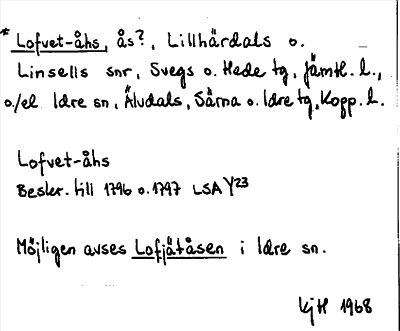 * Lofvet-åhs, ås?, Lillhärdals o.
Linsells snr, Svegs o. Hede tg, Jämtl. l.,
o./el Idre sn, Älvdals, Särna o. Idre tg, Kopp. l.
Lofvet-åhs
Beskr. till 1796 o. 1797 LSA Y23
Möjligen avses Lofjätåsen i Idre sn.
KjH 1968